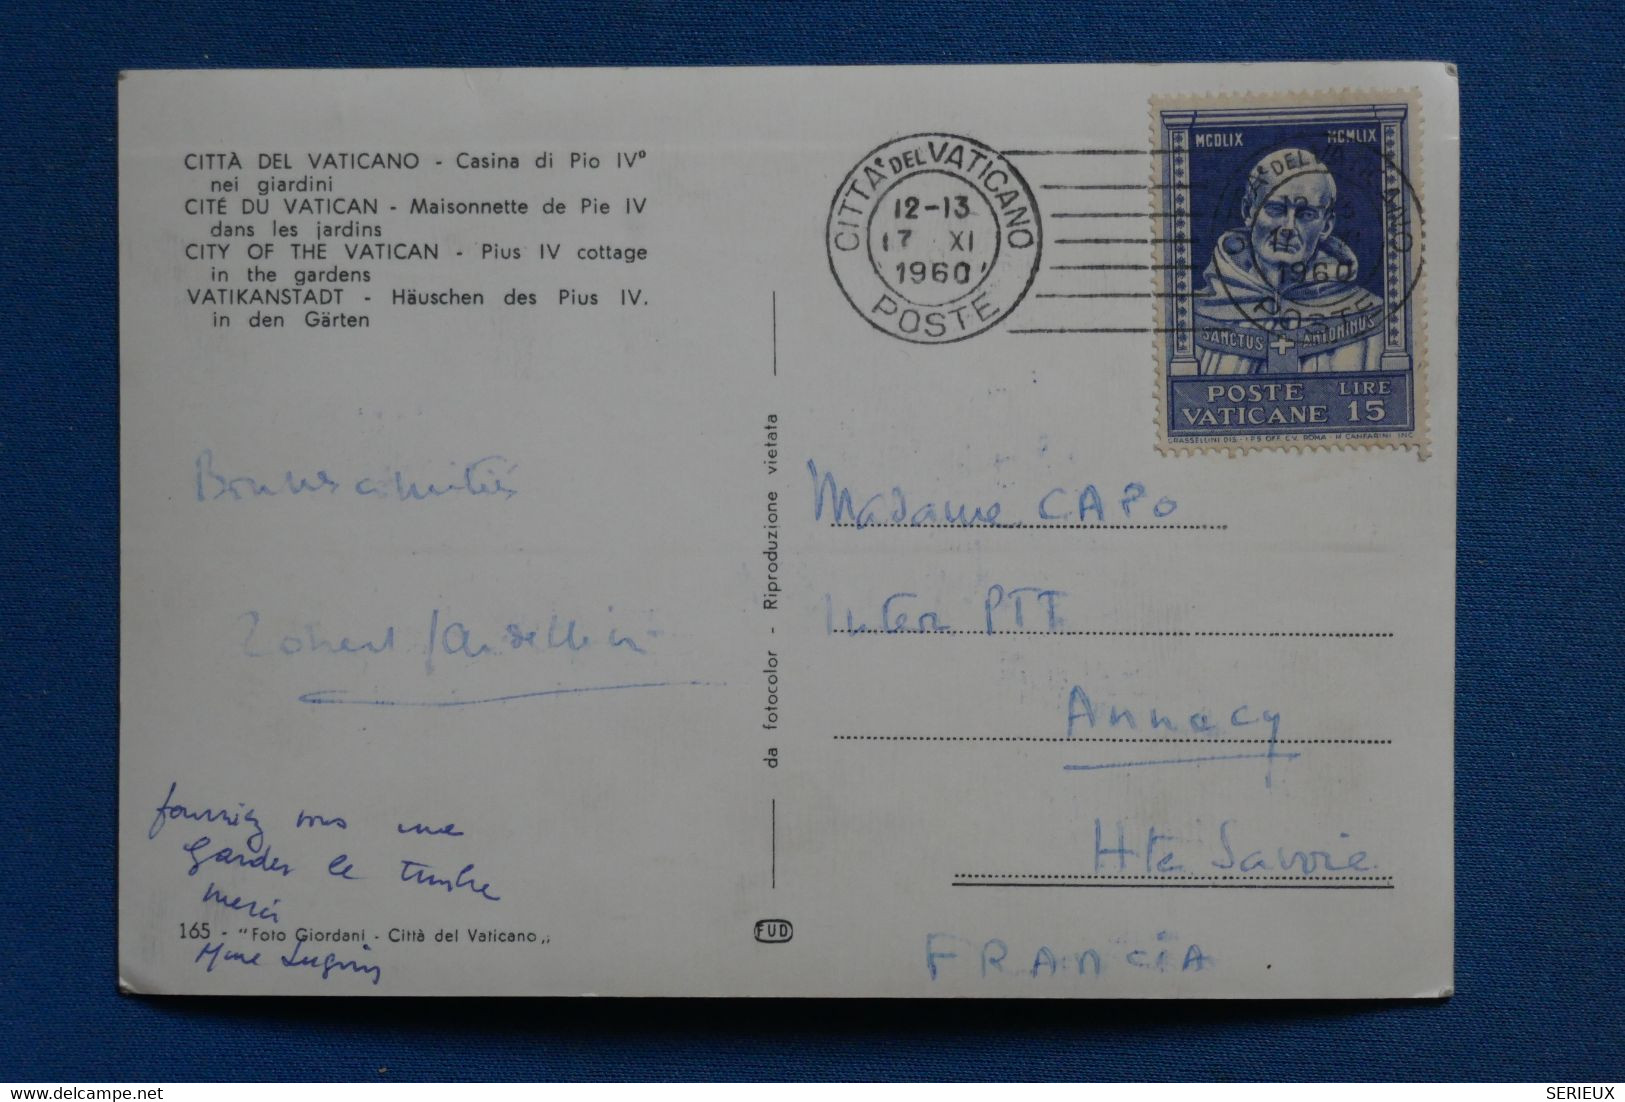 CITTÀ DEL VATICANO - Casina di Pio IVº
nei giardini
CITÉ DU VATICAN - Maisonnette de Pie IV
dans les jardins
CITY OF THE VATICAN - Pius IV cottage
in the gardens
VATIKANSTADT - Häuschen des Pius IV.
in den Gärten
CITTA' DEL VATICANO
12-13
17 XI
1960
POSTE
MCDLIX MCMLIX
CITTA' DEL VATICANO
12-13
17 XI
1960
POSTE
SANCTUS + ANTONINUS
POSTE LIRE
VATICANE 15
GRASSELLINI DIS. - I.P.S. OFF. C.V. ROMA - M. CANFARINI INC.
Bonnes amitiés
da fotocolor - Riproduzione vietata
Madame CAPO
Inter PTT
Annecy
Hte Savoie
FRANCIA
vous me
garder le timbre
merci
165 - "Foto Giordani - Città del Vaticano„
Mme
FUD
SERIEUX